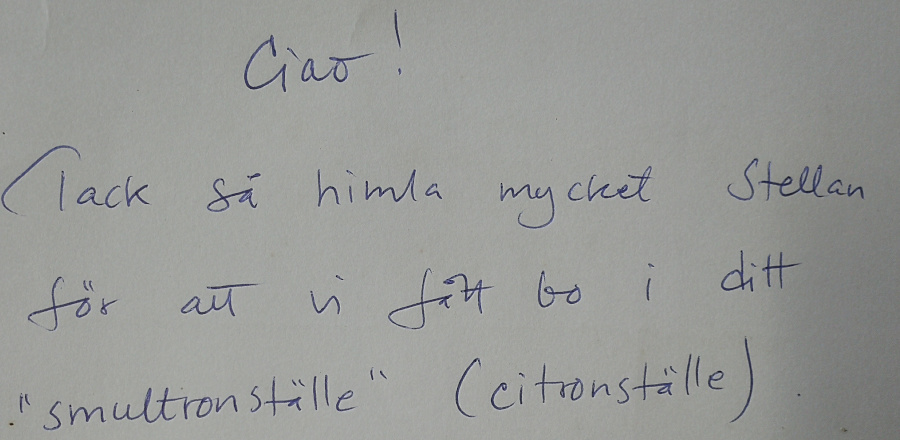 Ciao!
Tack så himla mycket Stellan
för att vi fått bo i ditt
"smultronställe" (citronställe).